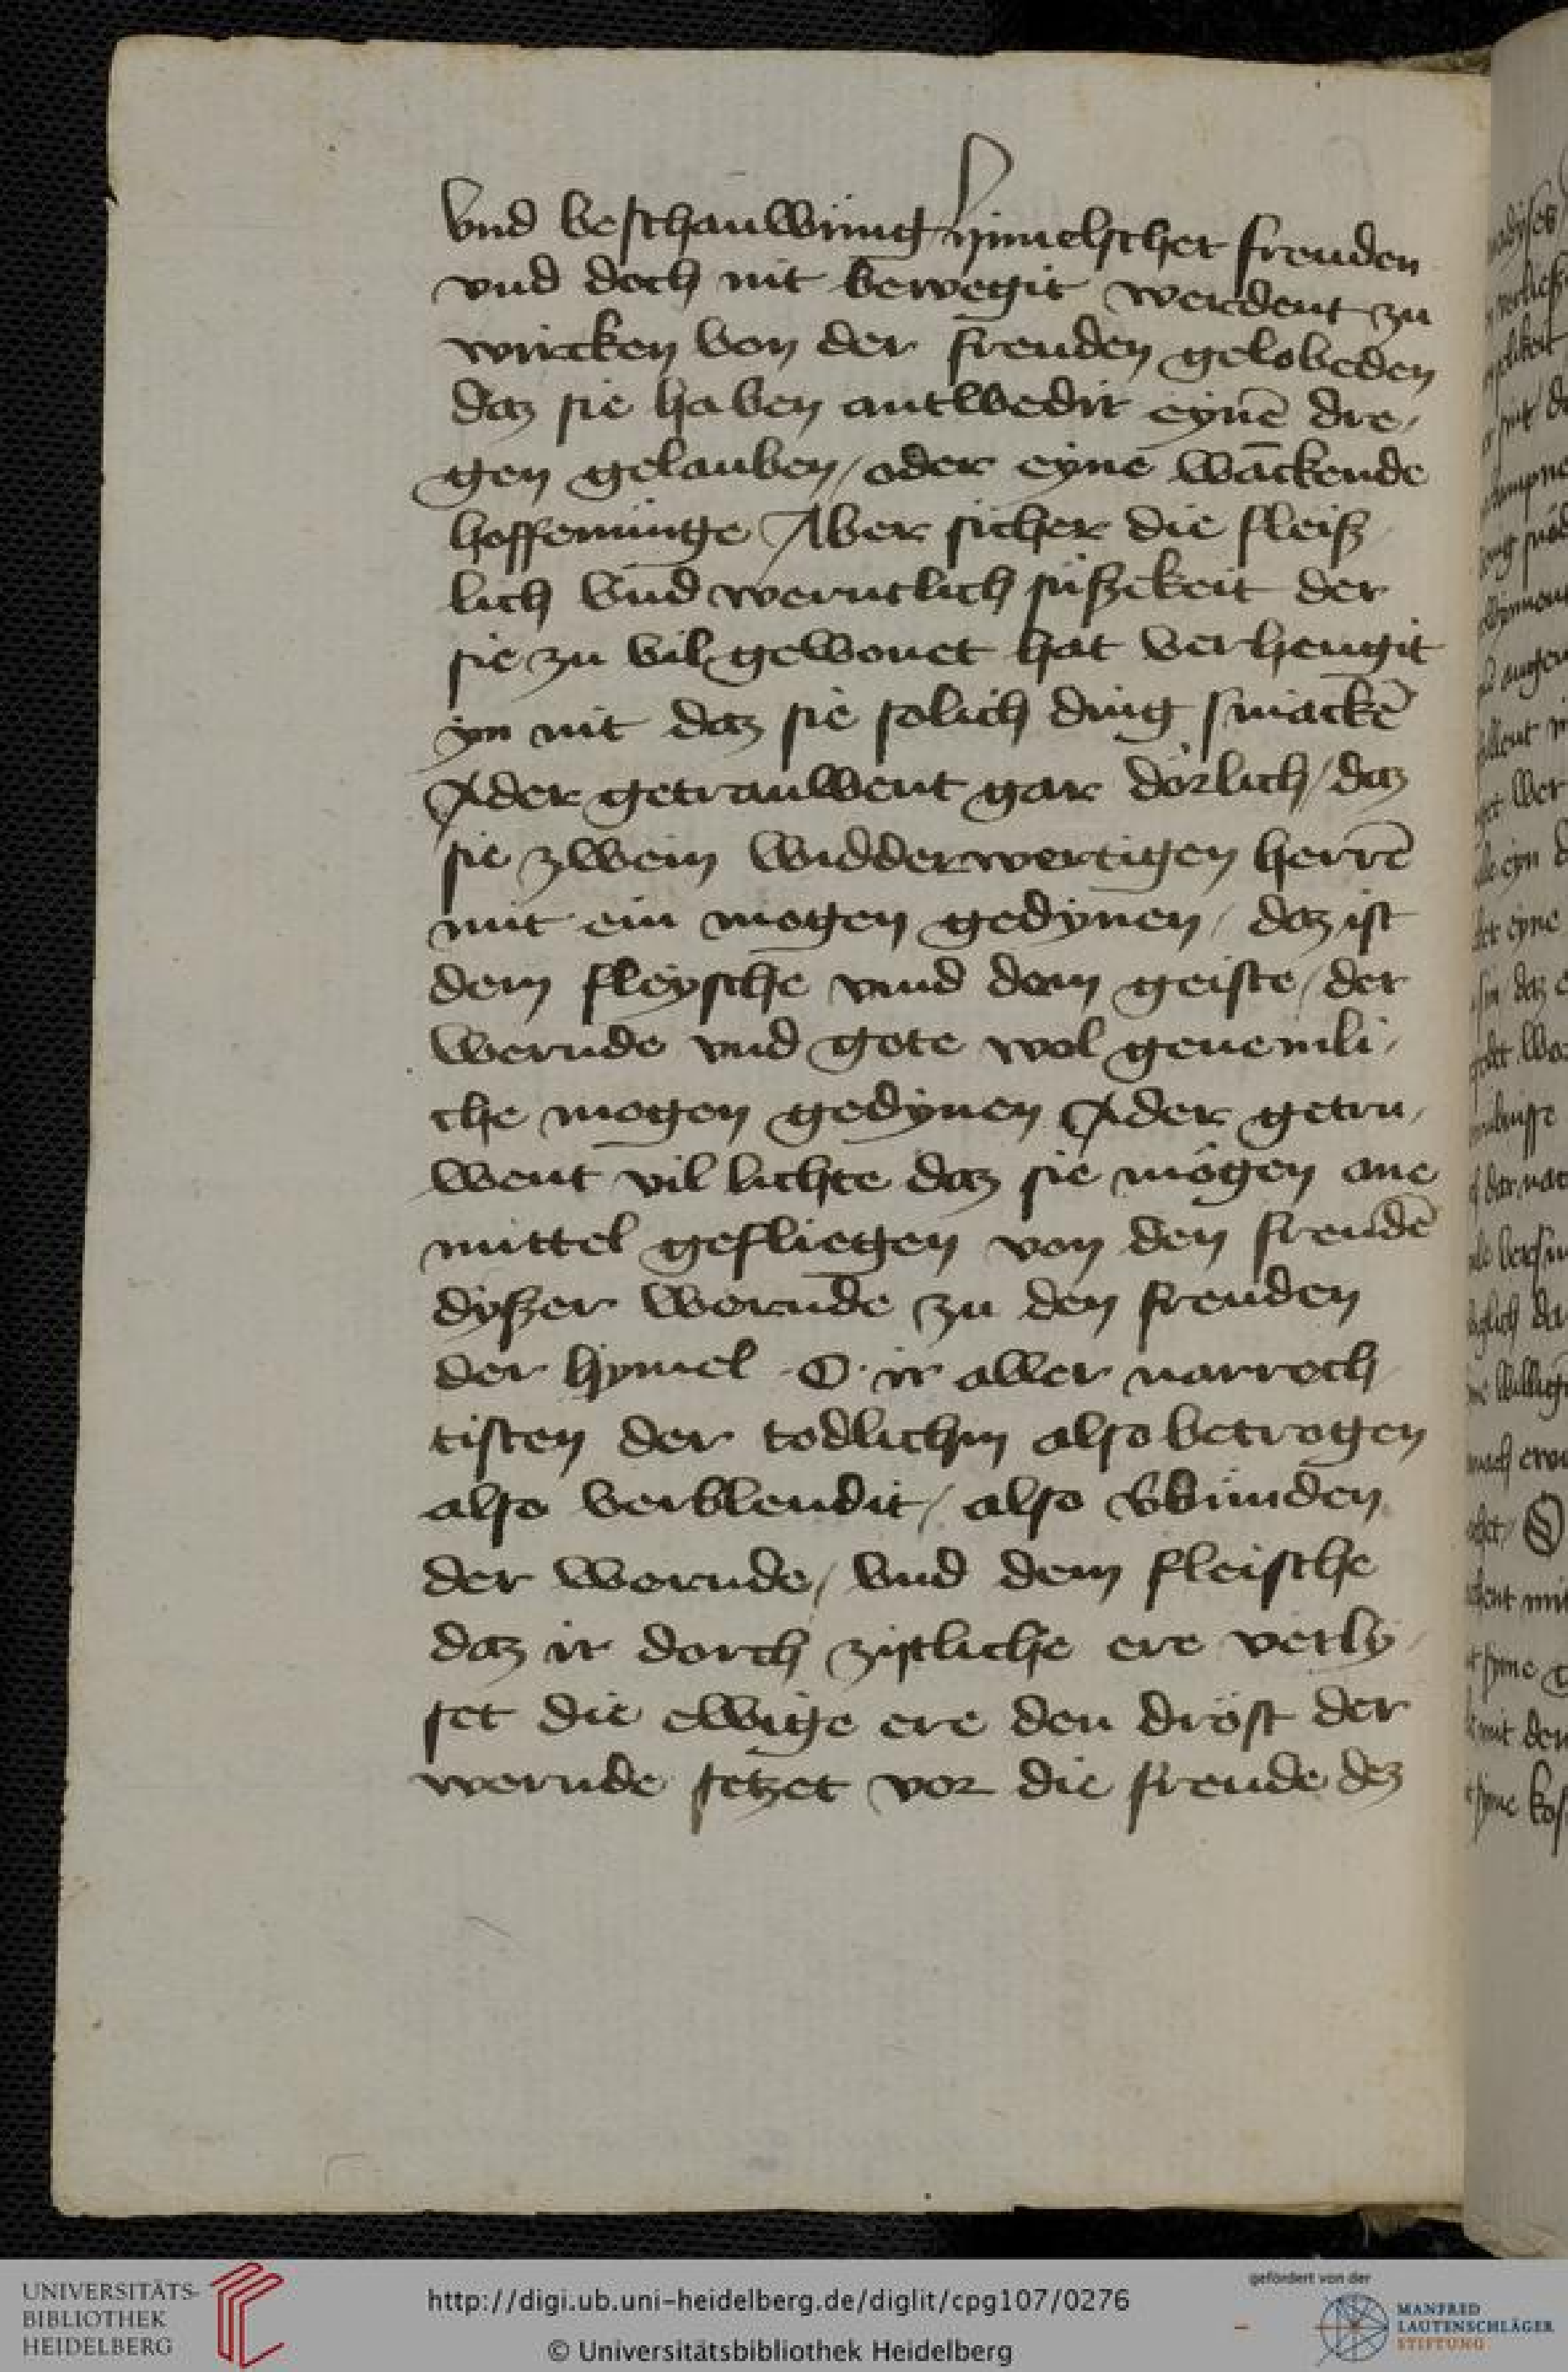 vnd beschauwüng hymelscher freuden
vnd doch nit bewegit werdent zu
wircken von der freuden gelobeden
daz sie haben antwedir eynē dre,
gen gelauben / oder eyne wāckende
hoffenunge Aber sicher die fleiß
lich vnd werntlich süßekeit der
sie zu vil gewonet hat verhengit
yn nit daz sie solich ding smackē
Ader getrauwent gar dorlich / daz
sie zwein widderwertigen herrē
mit ein mogen gedynen / daz ist
dem fleysche vnnd dem geiste / der
wernde vnd gote wol genemli,
che mogen gedynen Ader getru,
went vil lichte daz sie mogen ane
mittel gefliegen von den freudē
dyßer wernde zu den freuden
der hymel · O · ir aller narrech
tisten der todlichin also betrogen
also verblendit / also
der wernde / vnd dem fleische
daz ir dorch zijtliche ere verly,
set die ewige ere den drost der
wernde setzet vor die freude dez
UNIVERSITÄTS-
BIBLIOTHEK
HEIDELBERG
http://digi.ub.uni-heidelberg.de/diglit/cpg107/0276
© Universitätsbibliothek Heidelberg
gefördert von der
MANFRED
LAUTENSCHLÄGER
STIFTUNG